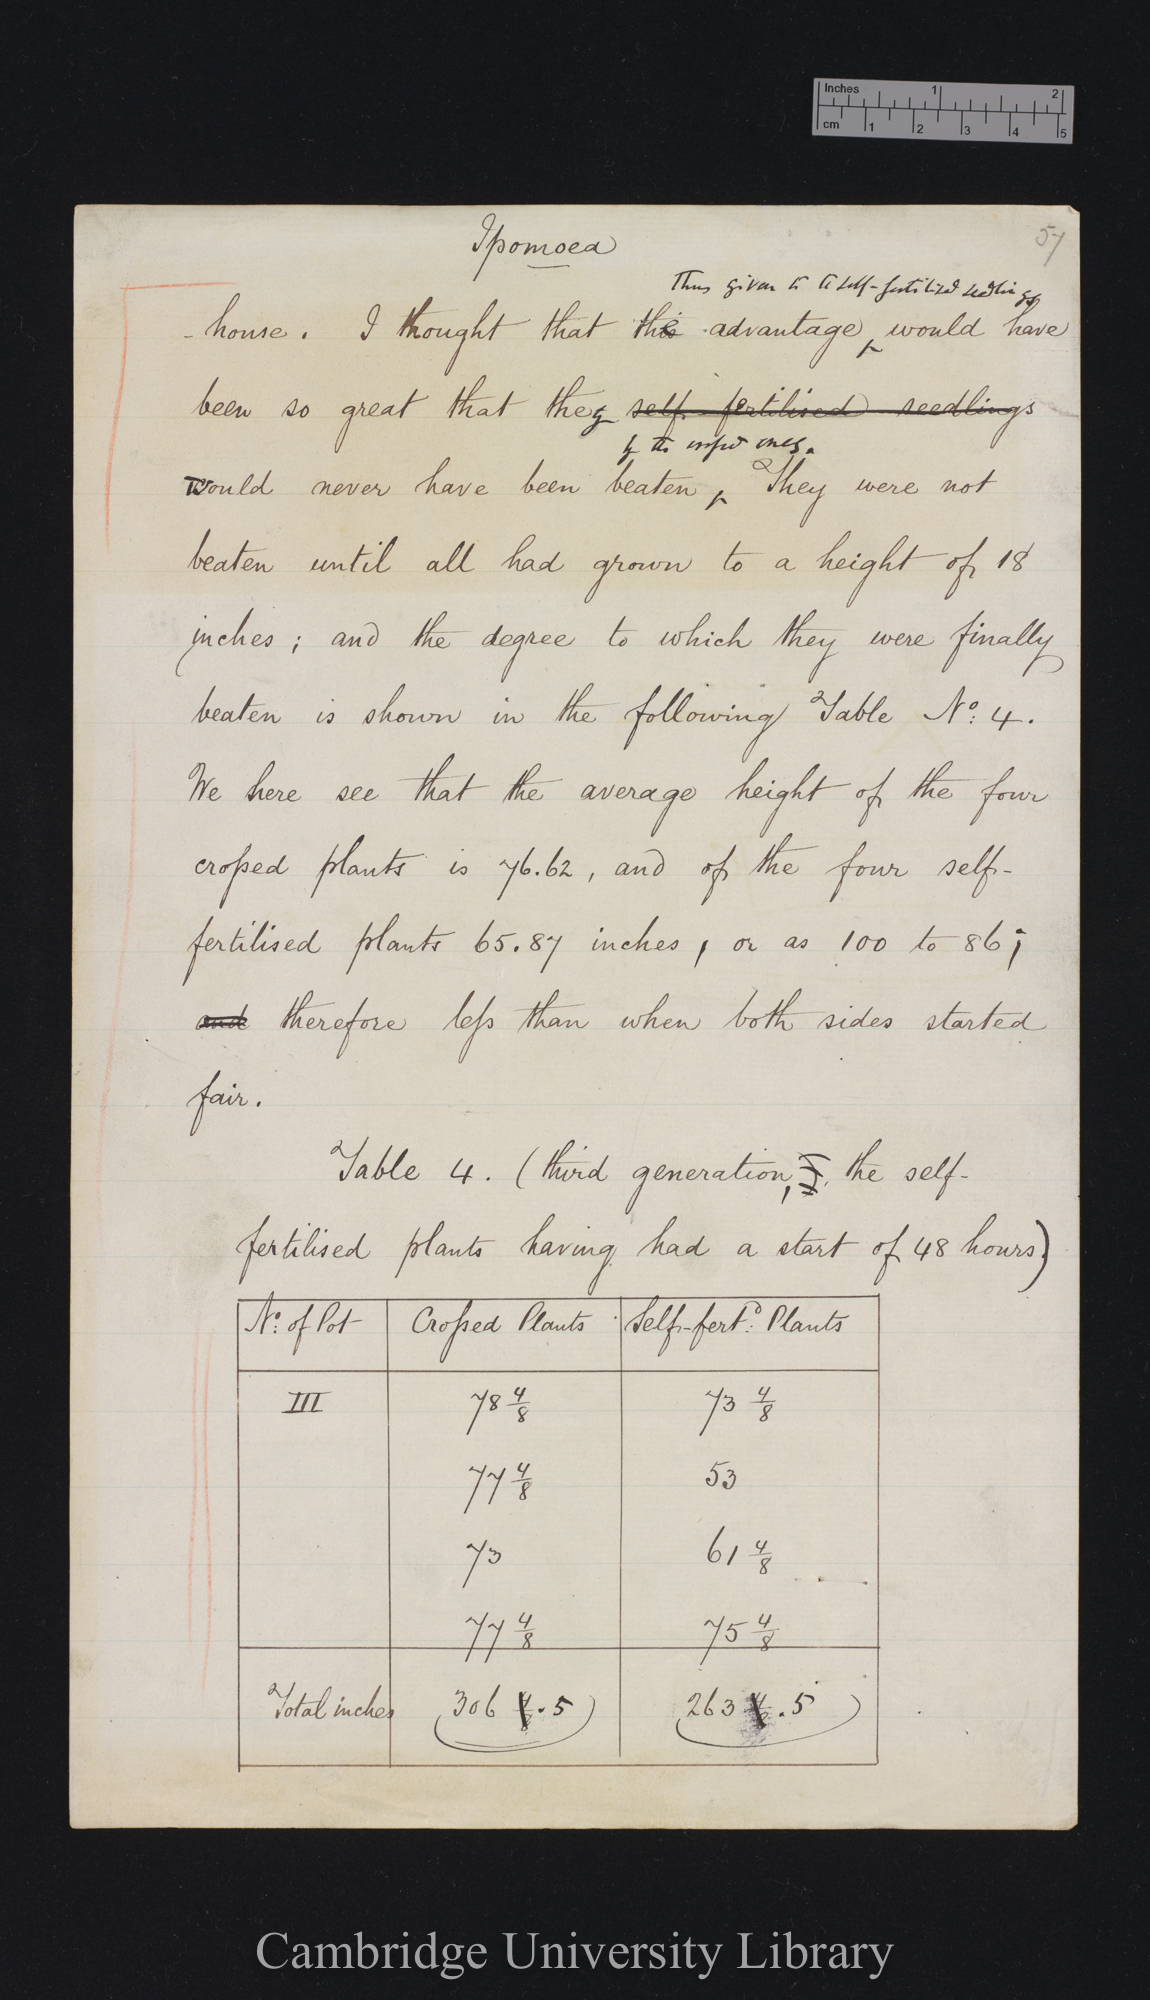 Inches 1 2
cm 1 2 3 4 5
Ipomoea
57
thus given to to self-fertilised seedlings
-house. I thought that the advantage would have
been so great that they self-fertilised seedlings
by the crossed ones.
would never have been beaten. They were not
beaten until all had grown to a height of 18
inches; and the degree to which they were finally
beaten is shown in the following Table No: 4.
We here see that the average height of the four
crossed plants is 76.62, and of the four self-
fertilised plants 65.87 inches, or as 100 to 86;
and therefore less than when both sides started
fair.
Table 4. (third generation, the self-
fertilised plants having had a start of 48 hours)
No. of Pot Crossed Plants Self-fertd: Plants
III 78 4/8 73 4/8
77 4/8 53
73 61 4/8
77 4/8 75 4/8
Total inches 306.5 263.5
Cambridge University Library